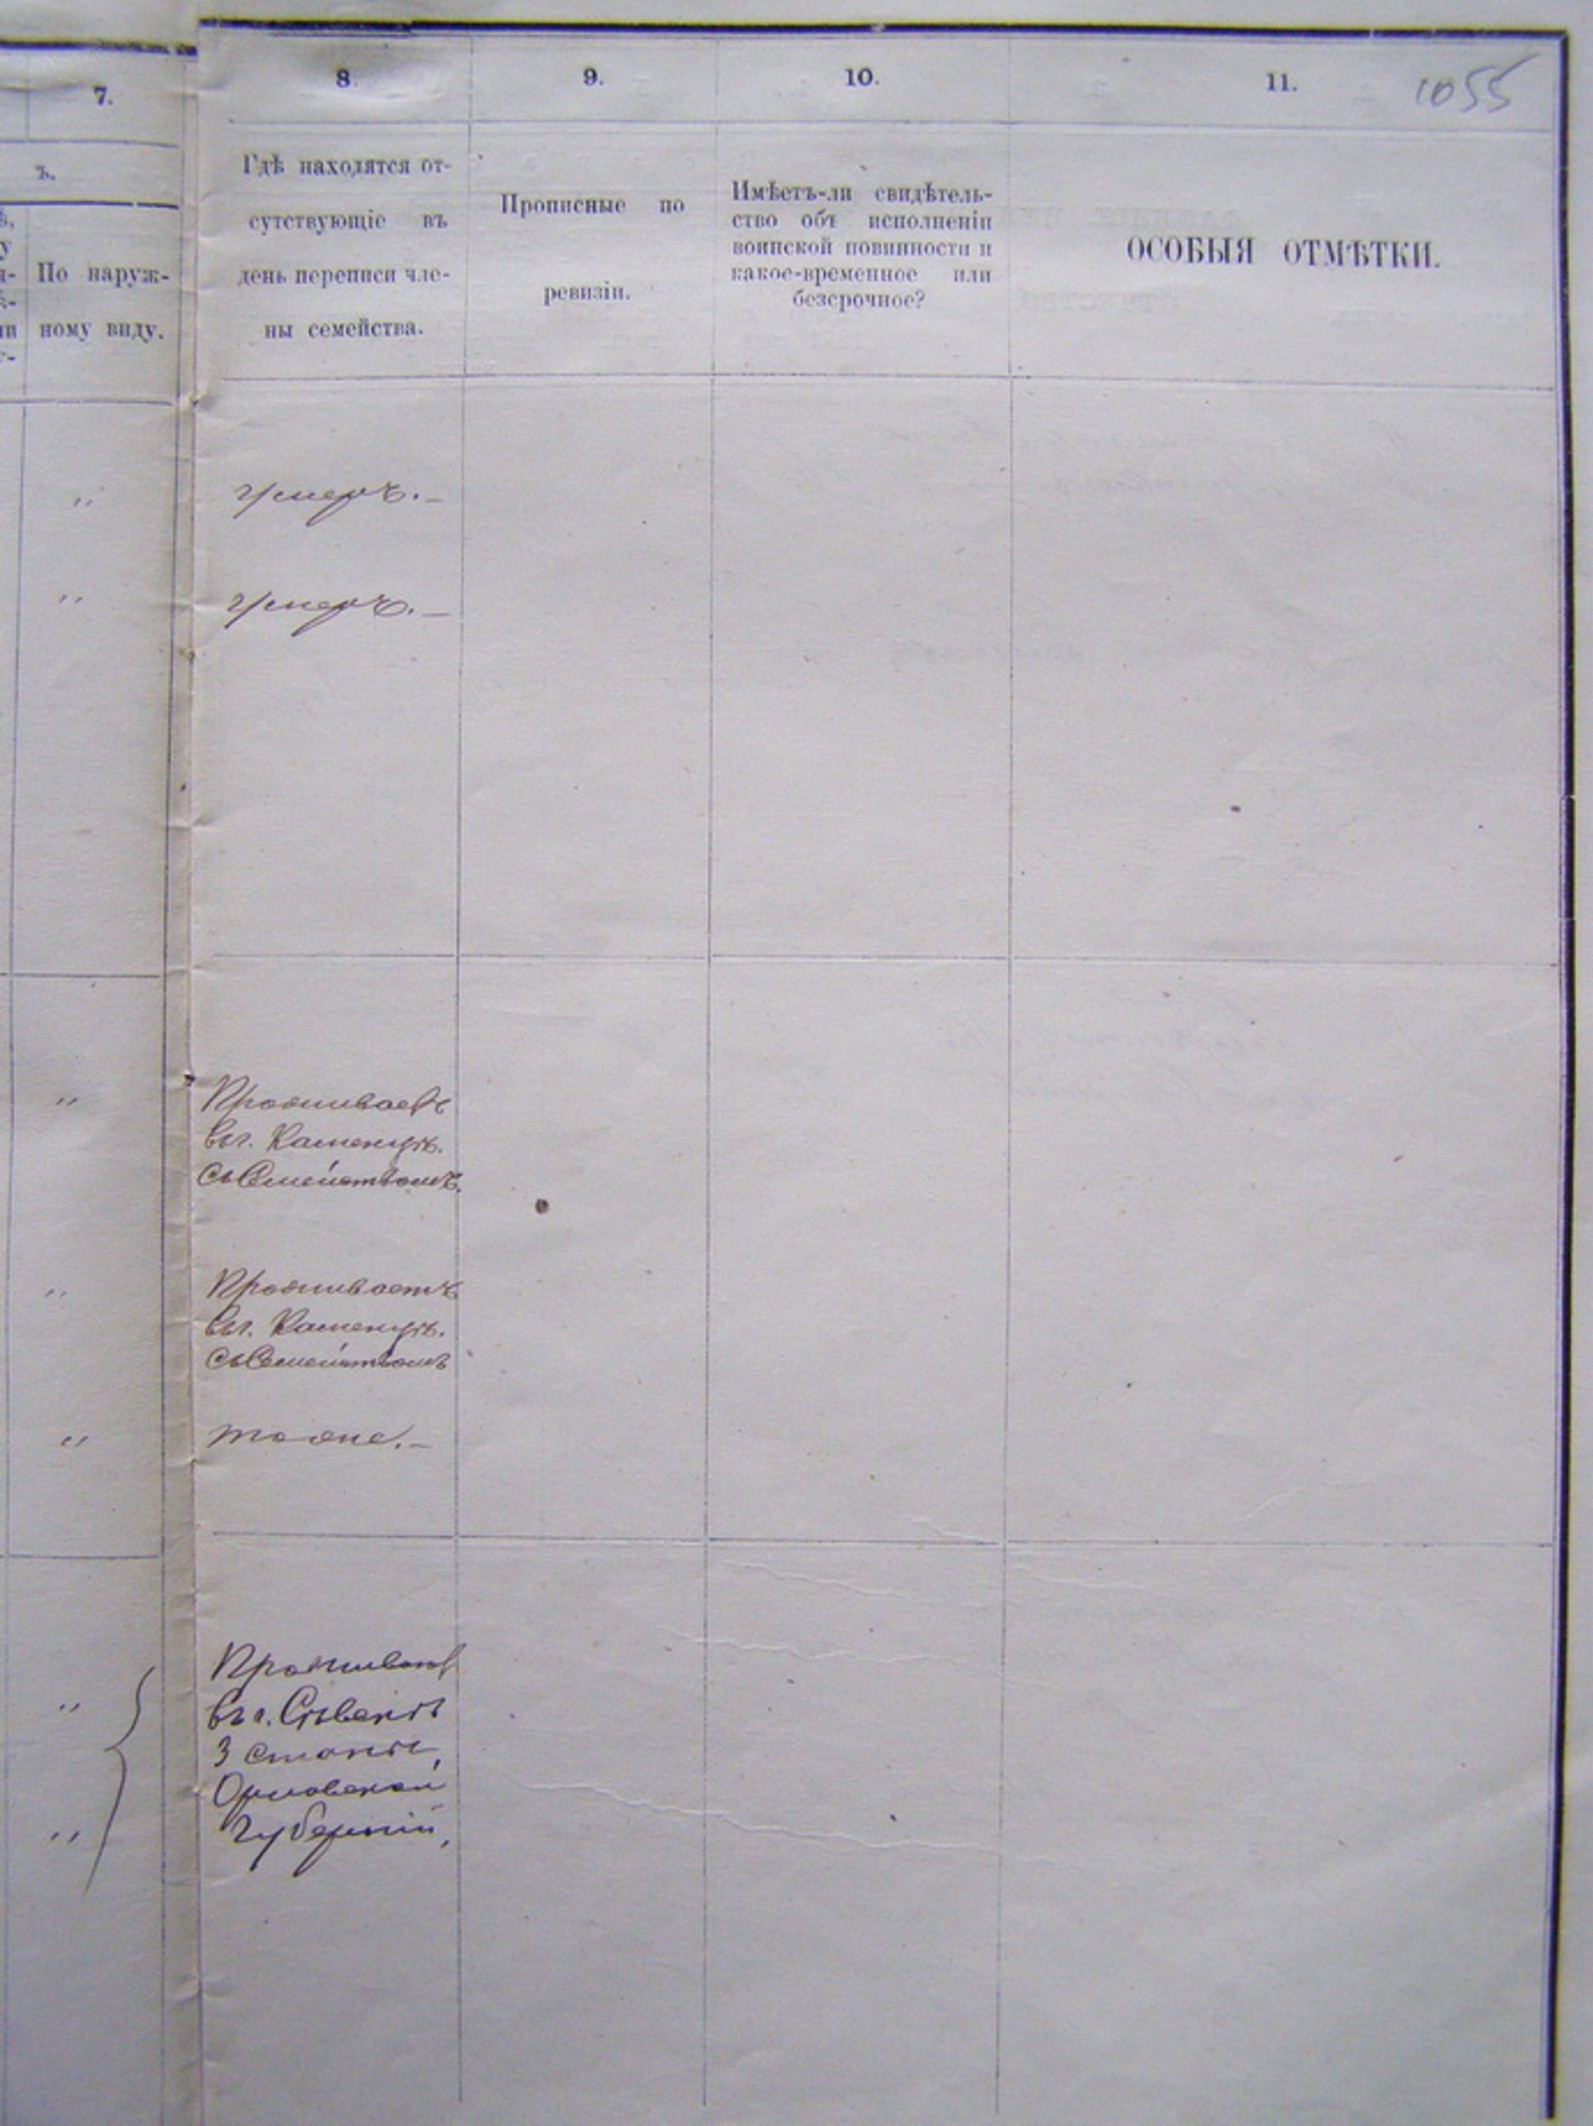 7.
8.
9.
10.
11.
1055
ъ.
По наруж-
ному виду.
Гдѣ находятся от-
сутствующіе въ
день переписи чле-
ны семейства.
Прописные по
ревизіи.
Имѣетъ-ли свидѣтель-
ство объ исполненіи
воинской повинности и
какое-временное или
безсрочное?
ОСОБЫЯ ОТМѢТКИ.
" умеръ.—
" умеръ.—
" Проживаетъ
въ г. Каменцѣ.
съ Семействомъ.
" Проживаетъ
въ г. Каменцѣ.
съ Семействомъ
" тоже.—
Проживают
" въ г. Сѣвскѣ
3 стана,
Орловской
" Губерніи,